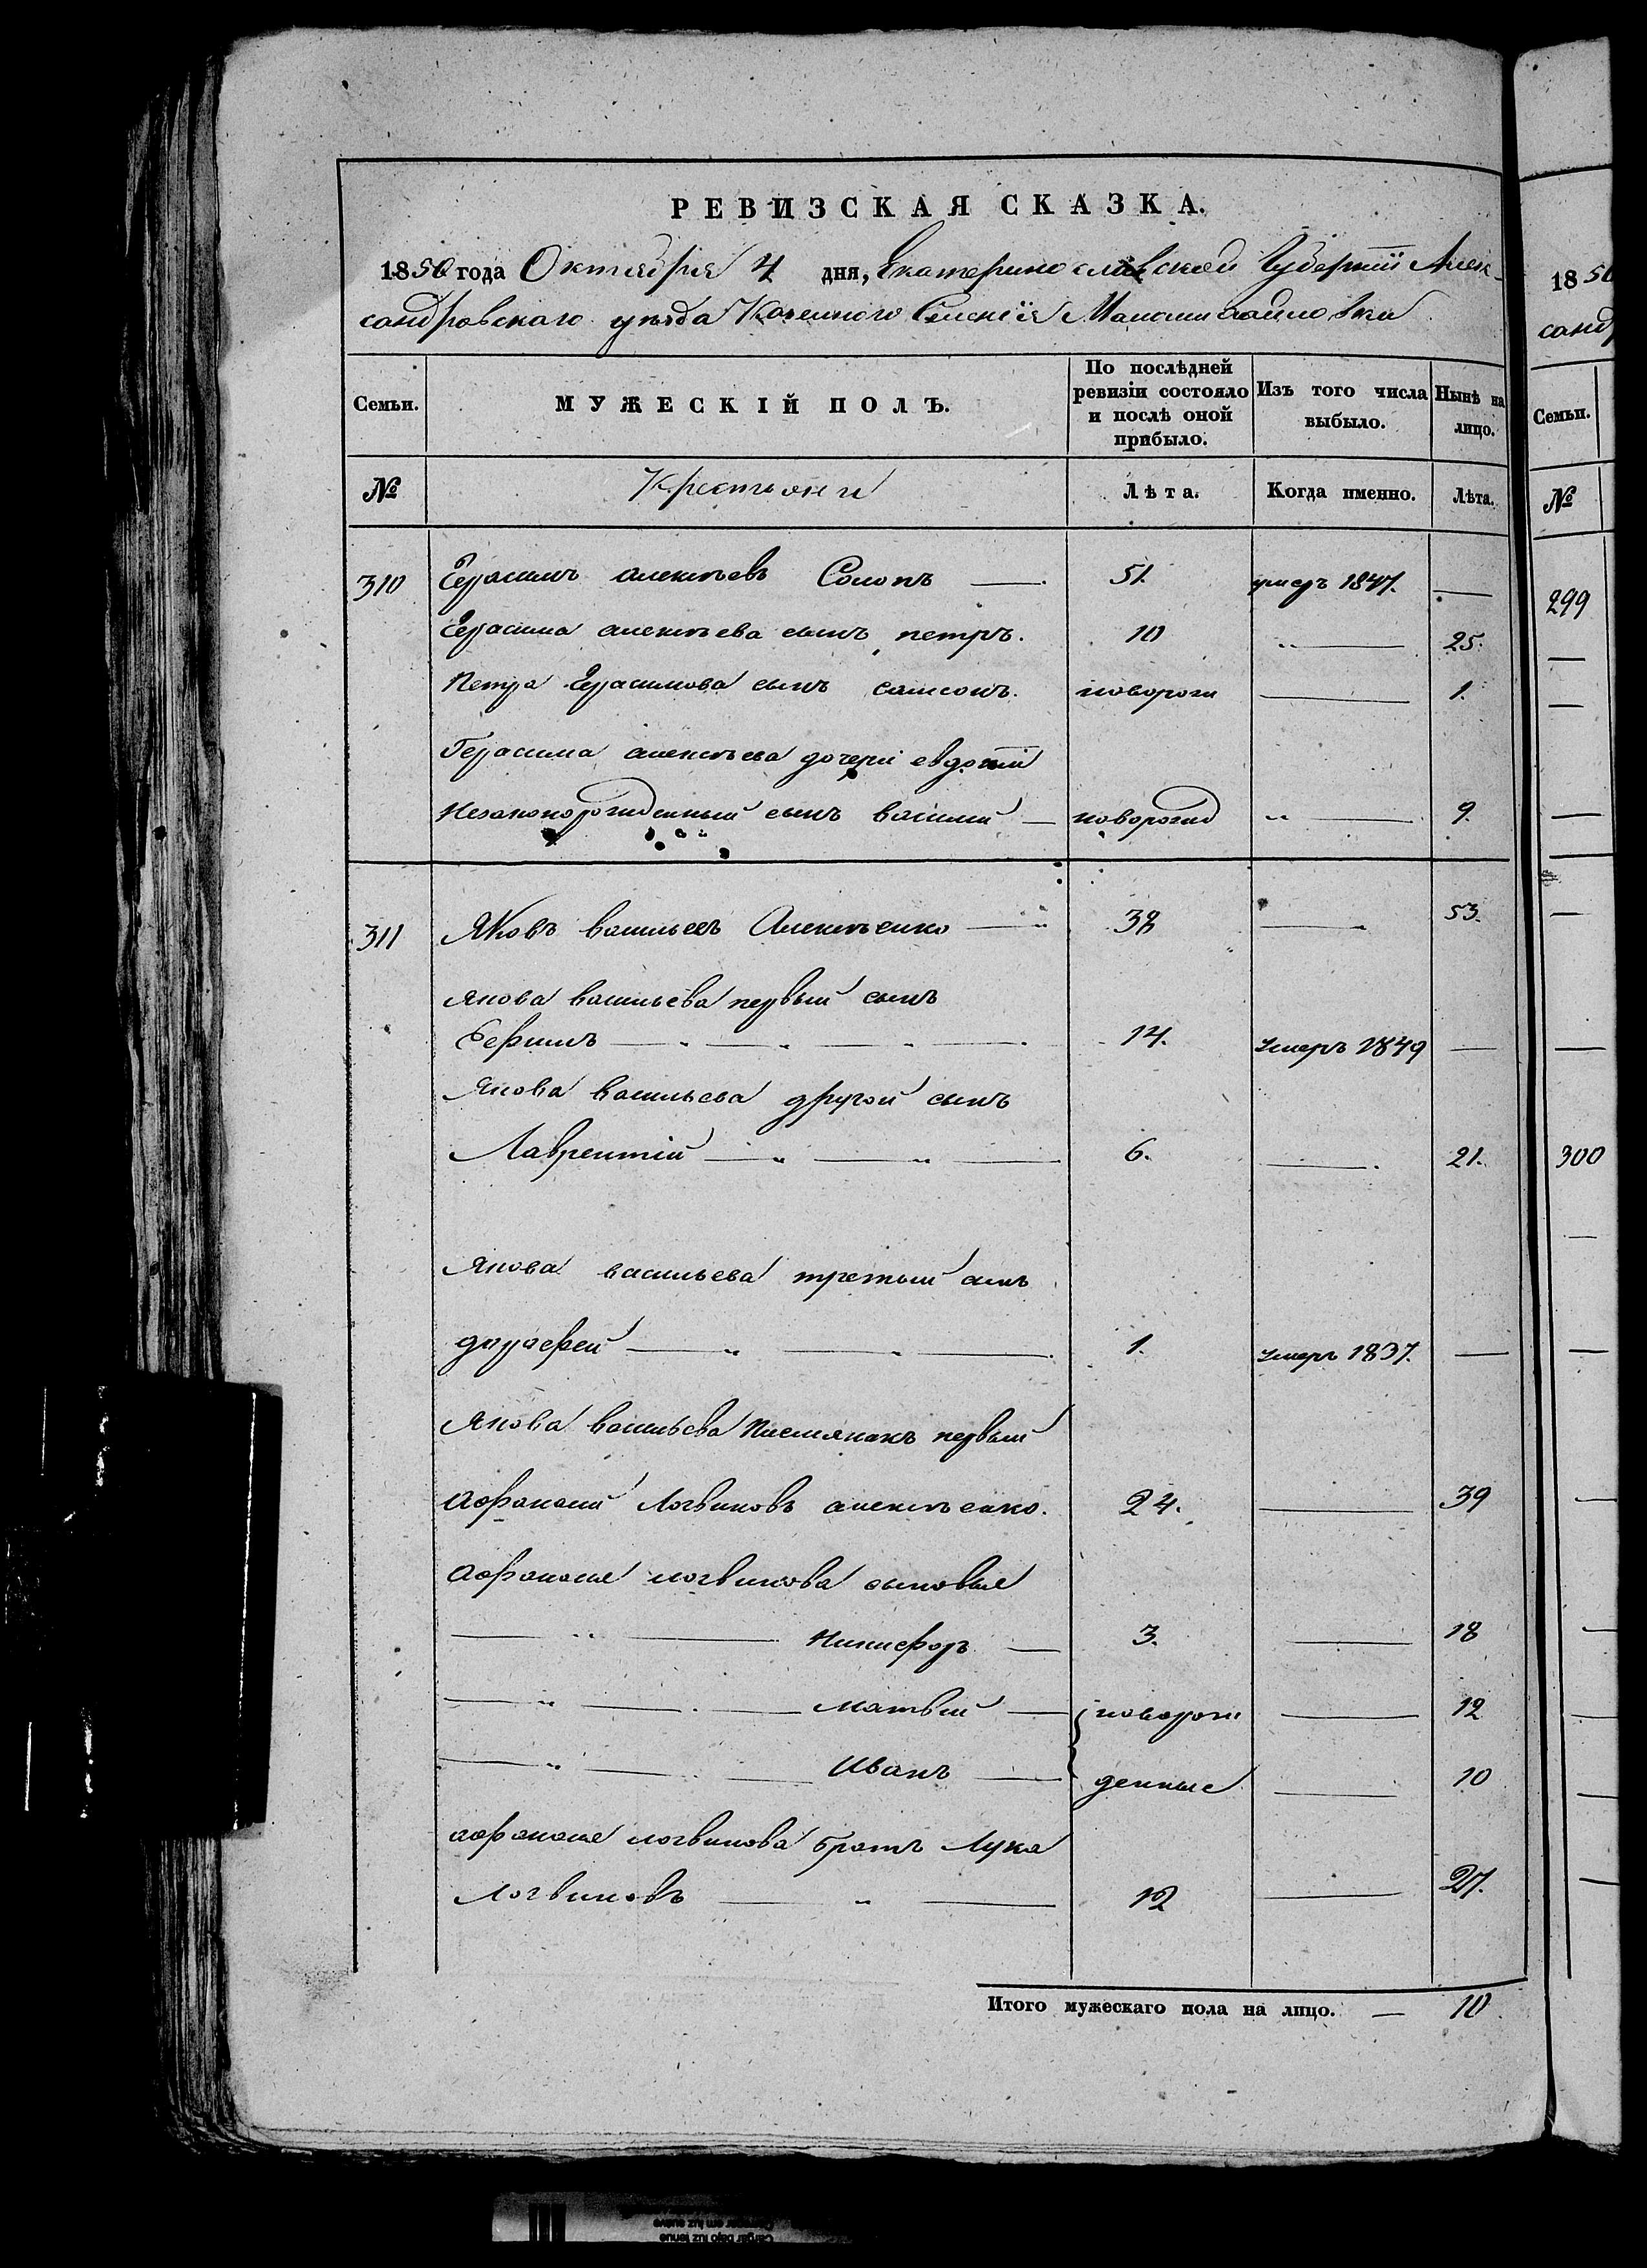 РЕВИЗСКАЯ СКАЗКА.
1850 года Октября 4 дня, Екатеринославской Губерніи Алек-
сандровскаго уѣзда Казенного Селенія Маломихайловки
Семьи. МУЖЕСКІЙ ПОЛЪ. По послѣдней ревизіи состояло и послѣ оной прибыло. Изъ того числа выбыло. Нынѣ на лицо.
№ Крестьяни Лѣта. Когда именно. Лѣта.
310 Герасимъ алексѣевъ Солопъ — 51. умеръ 1847. —
Герасима алексѣева сынъ петръ. 10 — 25.
Петра Герасимова сынъ самсонъ. новорож — 1.
Герасима алексѣева дочери евдотіи
Незаконорожденный сынъ василий — новорожд — 9.
311 Яковъ васильевъ Алексѣенко — 38 — 53.
Якова васильева первый сынъ
Ефимъ — 14. умеръ 1849 —
Якова васильева другой сынъ
Лаврентій — 6. — 21.
Якова васильева третый сынъ
дорофей — 1. умеръ 1837. —
Якова васильева Племянакъ первый
афанасий Логвиновъ алексѣенко. 24. — 39
афанасия логвинова сыновья
— Никифоръ — 3. — 18
— матвѣй — новорож — 12
— Иванъ — денные — 10
афанасия логвинова братъ Лука
логвиновъ — 12 — 27.
Итого мужескаго пола на лицо. — 10
1850
санд
Семьи.
№
299
300